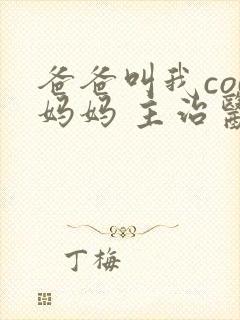 爸爸叫我co
妈妈 主治醫
丁梅